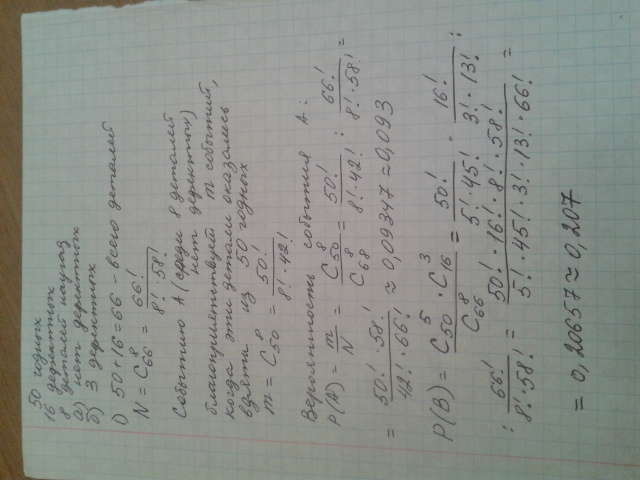 50 годных
16 дефектных
8 деталей наугад
а) нет дефектных
б) 3 дефектных
1) 50+16=66 - всего деталей
N = C₆₆⁸ = 66! / (8!·58!)
Событию А (среди 8 деталей
нет дефектных)
благоприятствует m событий,
когда эти детали оказались
взяты из 50 годных
m = C₅₀⁸ = 50! / (8!·42!)
Вероятность события А:
P(A) = m/N = C₅₀⁸ / C₆₈⁸ = 50! / (8!·42!) : 66! / (8!·58!) =
= 50!·58! / (42!·66!) ≈ 0,09347 ≈ 0,093
P(B) = C₅₀⁵·C₁₆³ / C₆₆⁸ = 50! / (5!·45!) · 16! / (3!·13!) :
: 66! / (8!·58!) = 50!·16!·8!·58! / (5!·45!·3!·13!·66!) =
= 0,20657 ≈ 0,207